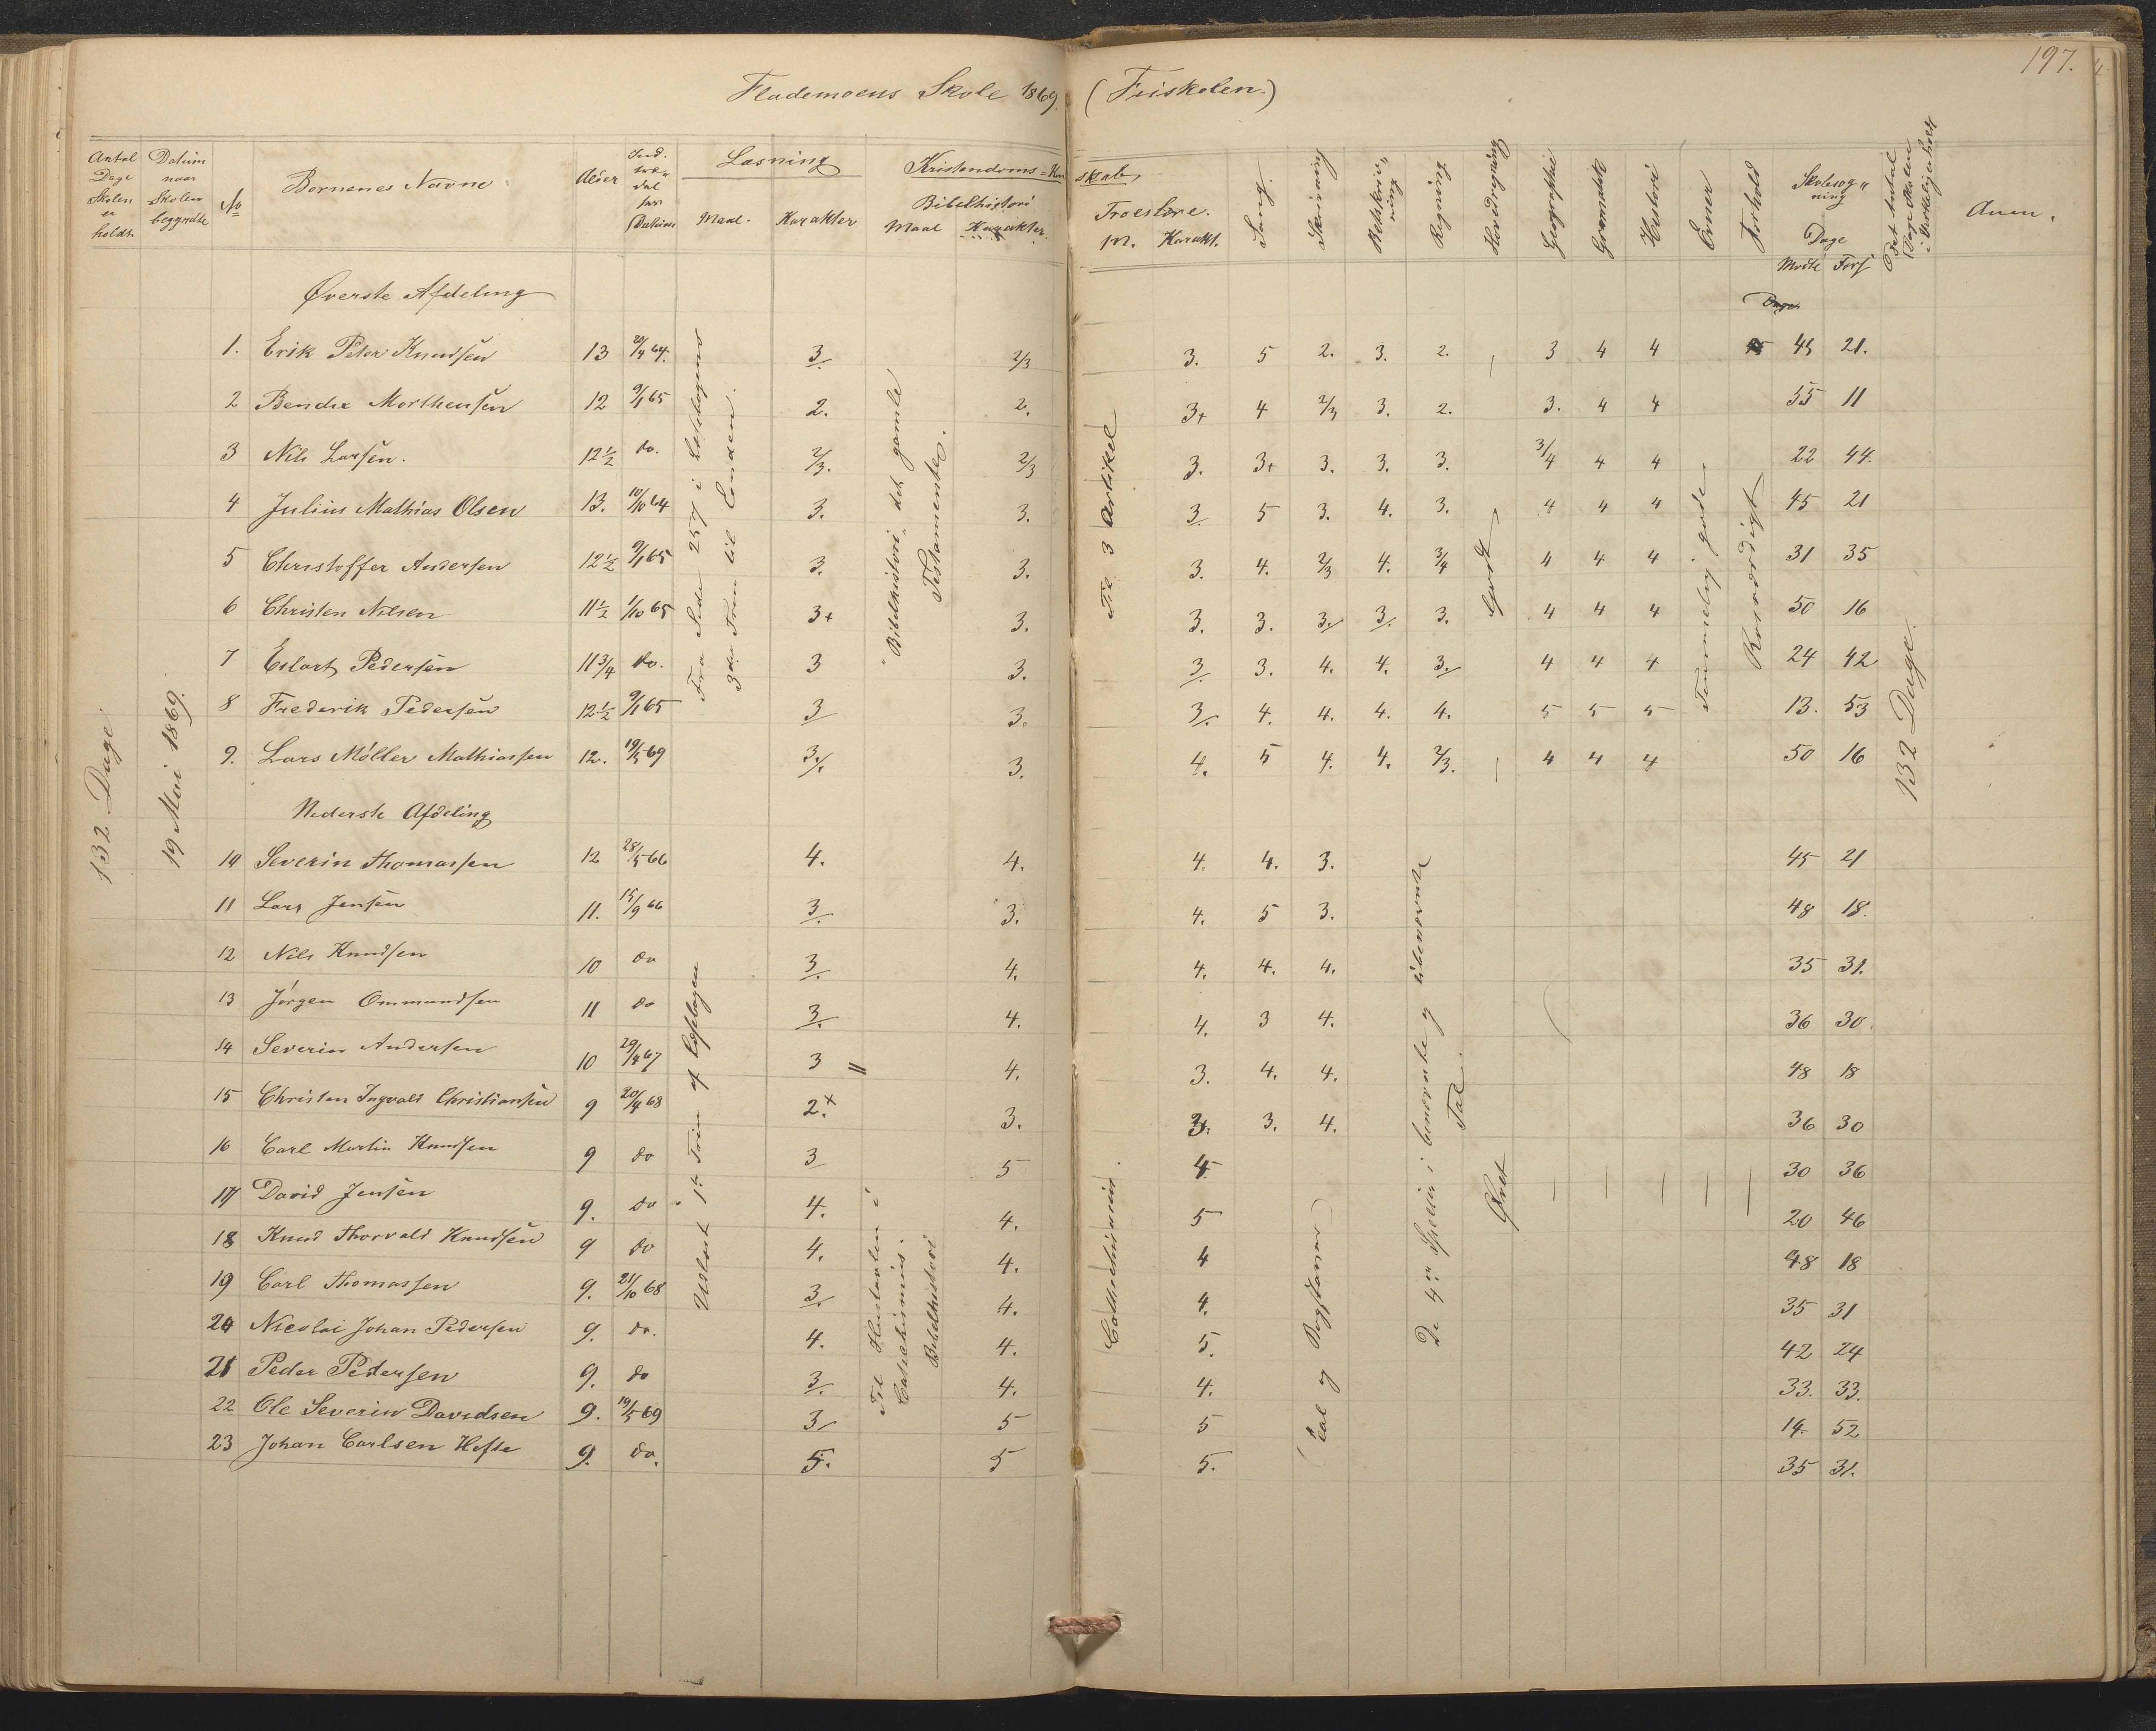 197.
Flademoens Skole 1869. (Friskolen.)
Antal Dage Skolen er holdt.
Datum naar Skolen begyndte
No
Børnenes Navne
Alder
Indtrædelses Datum
Læsning
Maal. Karakter
Kristendoms-Kundskab
Bibelhistorie
Maal Karakter.
Troeslære.
M. Karakt.
Sang.
Skrivning
Retskrivning
Regning
Haandregning
Geographie
Gramatik
Historie
Evner
Forhold
Skolesøgning
Dage
Mødte Fors
Det Antal Dage Skolen i Virkelighed
Anm.
132 Dage.
19 Mai 1869.
Øverste Afdeling
1. Erik Peter Knudsen 13 20/4 64. 3/. 2/3 3. 5 2. 3. 2. 3 4 4 45 21.
2 Bendix Morthensen 12 9/1 65 2. 2. 3+ 4 2/3 3. 2. 3. 4 4 55 11
3 Nils Larsen. 12½ do. 2/3. 2/3 3. 3+ 3. 3. 3. 3/4 4 4 22 44.
4 Julius Mathias Olsen 13. 10/10 64 3. 3. 3/ 5 3. 4. 3. 4 4 4 45 21
5 Christoffer Andersen 12½ 9/1 65 3. 3. 3. 4. 2/3 4. 3/4 4 4 4 31 35
6 Christen Nilsen 11½ 1/10 65 3+ 3. 3. 3. 3./ 3/. 3. 4 4 4 50 16
7 Eilart Pedersen 11¾ do. 3 3. 3/. 3. 4. 4. 3./ 4 4 4 24 42
8 Frederik Pedersen 12½ 9/1 65 3/ 3. 3/. 4. 4. 4. 4. 5 5 5 13. 53
9. Lars Möller Mathiassen 12. 19/5 69 3./. 3. 4. 5 4. 4. 2/3. 4 4 4 50 16
Fra Side 257 i Læsebogens
3die Trin til Enden.
Bibelhistorie det gamle
Testamente.
Til 3 Artikel
Godt
Temmelig gode
Rosværdigt
132 Dage.
Nederste Afdeling
10 Severin Thomassen 12 28/5 66 4. 4. 4. 4. 3. 45 21
11 Lars Jensen 11. 15/9 66 3/. 3. 4. 5 3. 48 18.
12 Nils Knudsen 10 do 3/. 4. 4. 4. 4. 35 31.
13 Jörgen Ommundsen 11 do 3/. 4. 4. 3 4. 36 30.
14 Severin Andersen 10 29/4 67 3 4. 3. 4. 4. 48 18
15 Christen Ingvald Christiansen 9 20/4 68 2.+ 3. 3. 3. 4. 36 30
16 Carl Martin Knudsen 9 do 3 5 4 30 36
17 David Jensen 9. do 4. 4. 5 20 46
18 Knud Thorvald Knudsen 9 do 4. 4. 4 48 18
19 Carl Thomassen 9. 21/10 68 3/. 4. 4. 35 31
20 Nicolai Johan Pedersen 9. do. 4. 4. 5. 42 24
21 Peder Pedersen 9. do 3/. 4. 4. 33. 33.
22 Ole Severin Davidsen 9. 19/5 69 3/ 5 5 14. 52
23 Johan Carlsen Hefte 9. do. 5. 5 5. 35 31.
Udlært 1ste Trin af Læsebogen
Til Hustavlen i
Catechismus.
Bibelhistorie
Cathechismus.
(Tal og Bogstaver)
De 4re Specier i benævnte og ubenævnte
Tal.